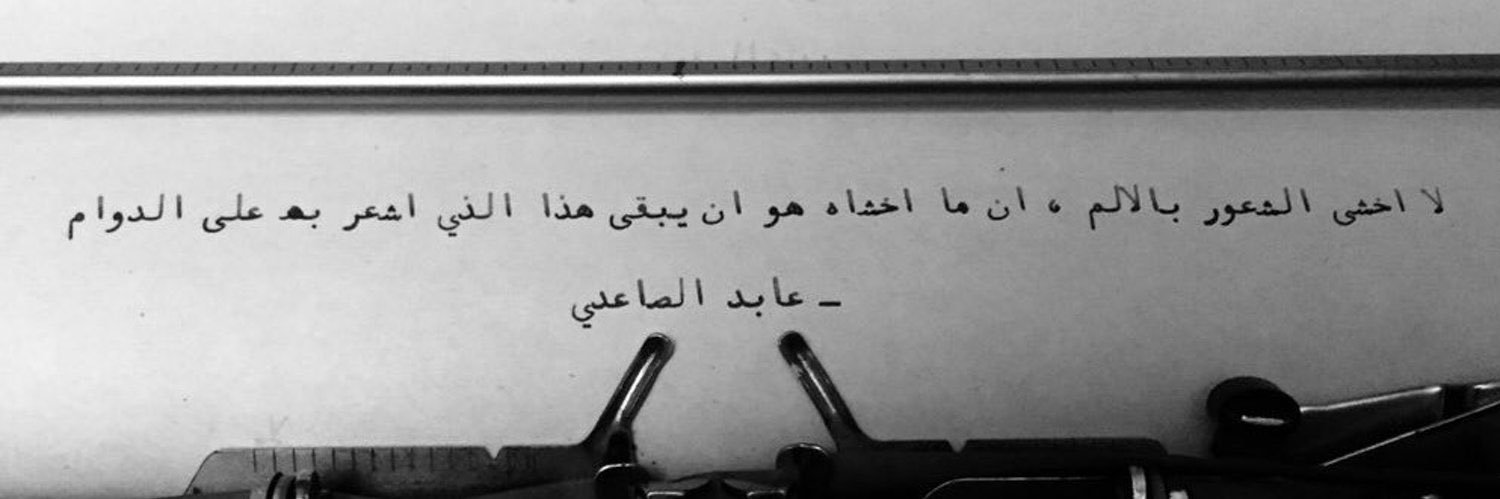 لا اخشى الشعور بالالم ، ان ما اخشاه هو ان يبقى هذا الذي اشعر به على الدوام
ـ عابد الصاعدي